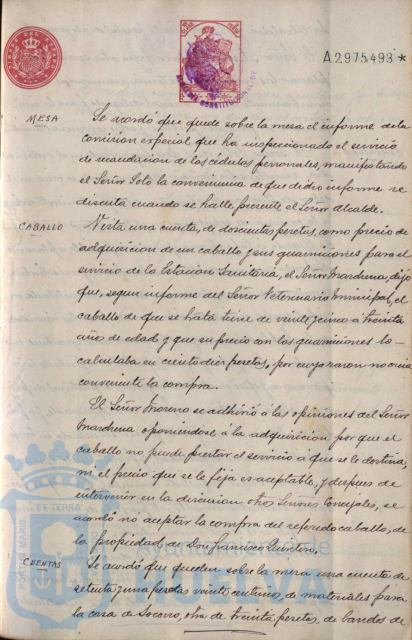 A2975493*
MESA
Se acordó que quede sobre la mesa el informe dela
comision especial que ha inspeccionado el servicio
de recaudacion de las cédulas personales, manifestando
el Señor Soto la conveniencia de que dicho informe se
discuta cuando se halle presente el Señor Alcalde.
CABALLO
Vista una cuenta, de doscientas pesetas, como precio de
adquisicion de un caballo y sus guarniciones para el
servicio de la Estacion Sanitaria, el Señor Marchena, dijo
que, segun informe del Señor Veterinario Municipal, el
caballo de que se trata tiene de veinte y cinco á treinta
años de edad y que su precio con las guarniciones lo
calculaba en ciento diez pesetas, por cuya razon no creia
conveniente la compra.
El Señor Moreno se adhirió á las opiniones del Señor
Marchena oponiendose á la adquisicion por que el
caballo no puede prestar el servicio á que se le destina,
ni el precio que se le fija es aceptable, y despues de
intervenir en la discusion otros Señores Concejales, se
acordó no aceptar la compra del referido caballo, de
la propiedad, de Don Francisco Quintero.
CUENTAS
Se acordó que queden sobre la mesa una cuenta de
setenta y una pesetas veinte centimos, de materiales para
la casa de Socorro, otra de treinta pesetas, de bandos de
EX TERRA
PORTUS MARIS
Ayuntamiento de
HUELVA